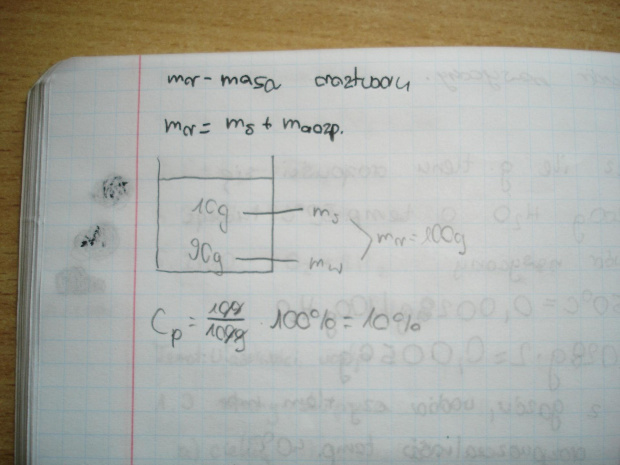 mr - masa roztworu
mr = ms + mrozp.
10g ms
mr = 100g
90g mw
Cp = 10g/100g · 100% = 10%